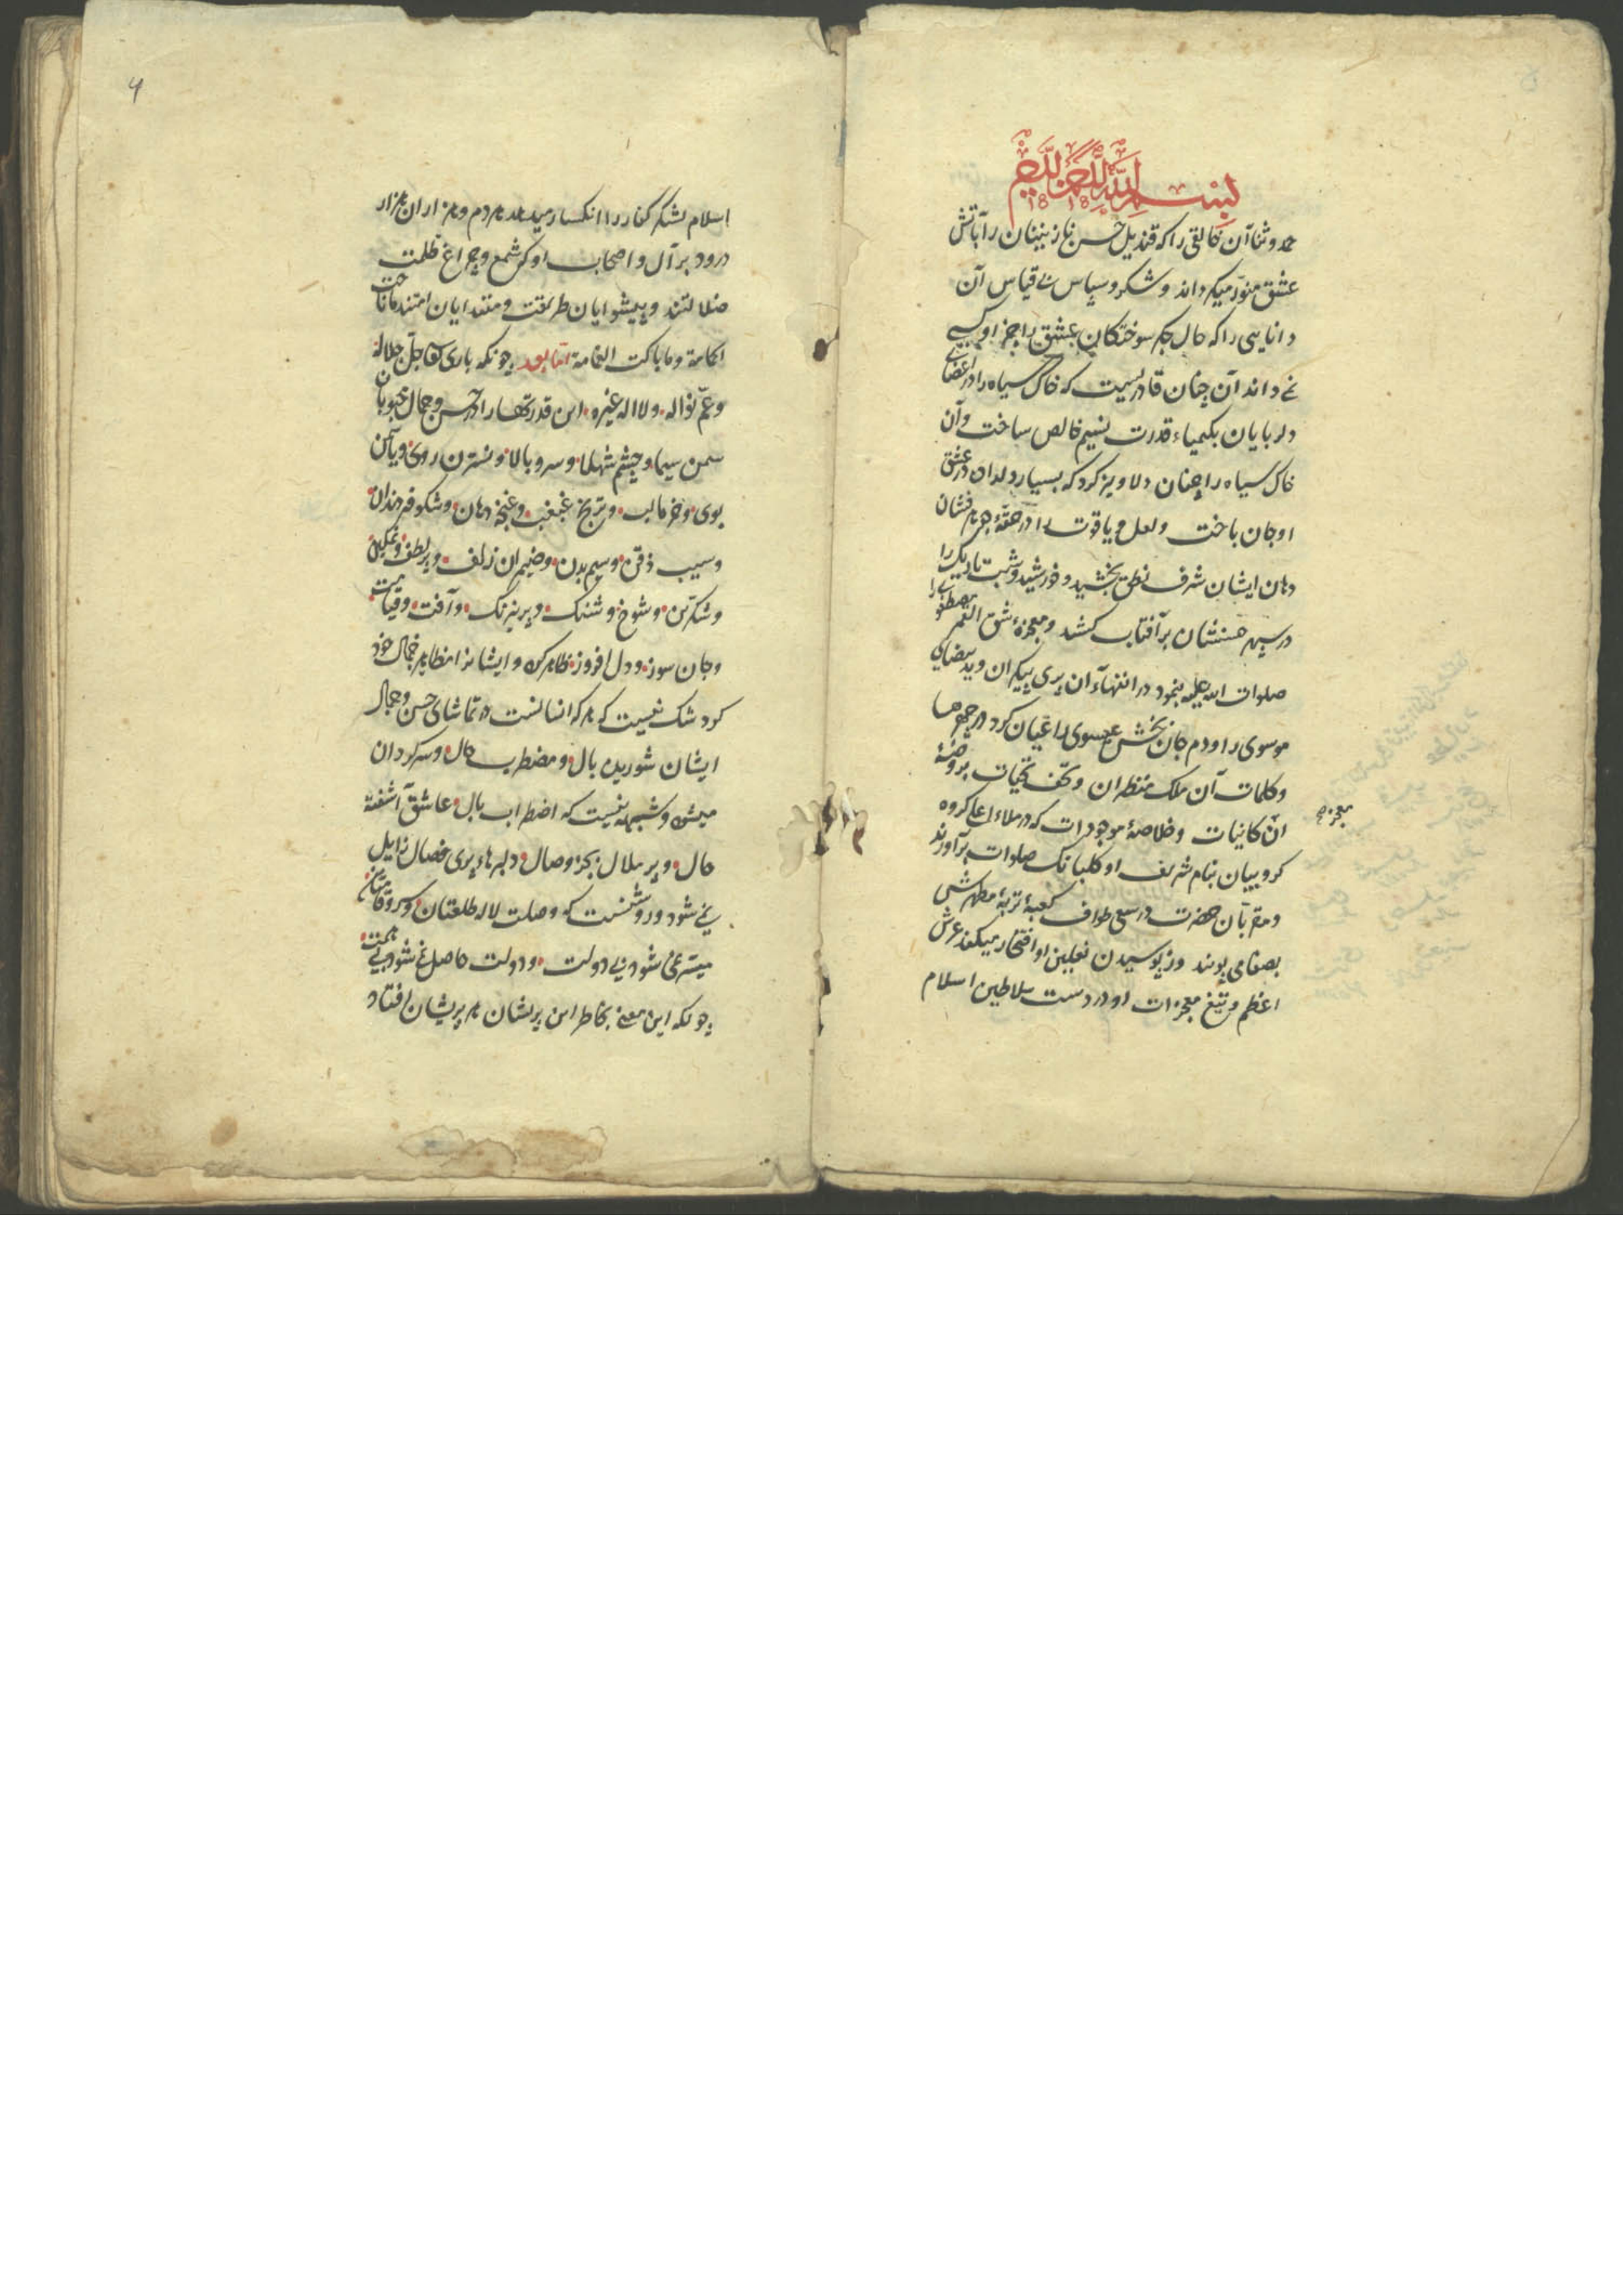 بسم الله الرحمن الرحيم
حمد و ثنا آن خالقی را که قندیل حسن نازنینان را بآتش
عشق منور میکرداند و شکر و سپاس بی قیاس آن
دانایی را که حال جکر سوختکان عشق را جز او کسی
نمی داند آن چنان قادریست که خاک سیاه را در اعضای
دلربایان بکیمیاء قدرت نسیم خالص ساخت و آن
خاک سیاه را چنان دلاویز کرد که بسیار دلدان در عشق
او جان باخت ولعل و یاقوت را در حقهٔ فشان
دهان ایشان شرف نطق بخشید و خورشید و شب تاریک را
در سپهر حسنشان بر آفتاب کشید و معجزهٔ شق القمر مصطفوی را
صلوات الله علیه بنمود در اثنهاء آن پری پیکران و ید بیضای
موسوی را و دم جان بخش عیسوی را عیان کرد در
وکلمات آن ملک منظران و تحف تحیات بر روضهٔ
آن کانیات و خلاصهٔ موجودات که در ملاء اعلی کروه
کروبیان بنام شریف او کلبانک صلوات برآورند
ومقربان حضرت در سعی طواف کعبهٔ تربهٔ مطهرش
بصفا می پویند وز بوسیدن نعلین او افتخار میکند عرش
اعظم و تیغ معجزات او در دست سلاطین اسلام
معجزه
۴
اسلام لشکر کفار را انکسار میدهد هر دم و هزاران هزار
درود بر آل و اصحاب او که شمع و چراغ ظلمت
ضلالتند و پیشوایان طریقت و مقتدایان امتند ما ناحت
الحامة وما باکت الغمامة اما بعد چونکه باری تعالی جل جلاله
وعم نواله ولا اله غیره این قدرتها را در حسن و جمال محبوبان
سمن سیما و چشم شهلا و سرو بالا و نسترن روی و یاسمن
بوی و غبغب و غنچه دهان و شکوفه دندان
وسیب ذقن و سیم بدن و ضیمران زلف و پر لطف و نمکین
و شکرین و شوخ و شنک و پر نیرنک و آفت و قیامت
وجان سوز و دل افروز ظاهر کرده و ایشانرا مظاهر جمال خود
کرد شک نیست که هر که انسانست در تماشای حسن و جمال
ایشان شوریده بال و مضطرب حال و سرکردان
میشود و شبهه نیست که اضطراب بال عاشق آشفته
حال و پر ملال بجز وصال دلبرهاء پری خصال زایل
نمی شود و روشنست که وصلت لاله طلعتان و سرو قامتان
میسر نمی شود بی دولت و دولت حاصل نمی شود بی همت
چونکه این معنی بخاطر این پریشان هر پریشان افتاد